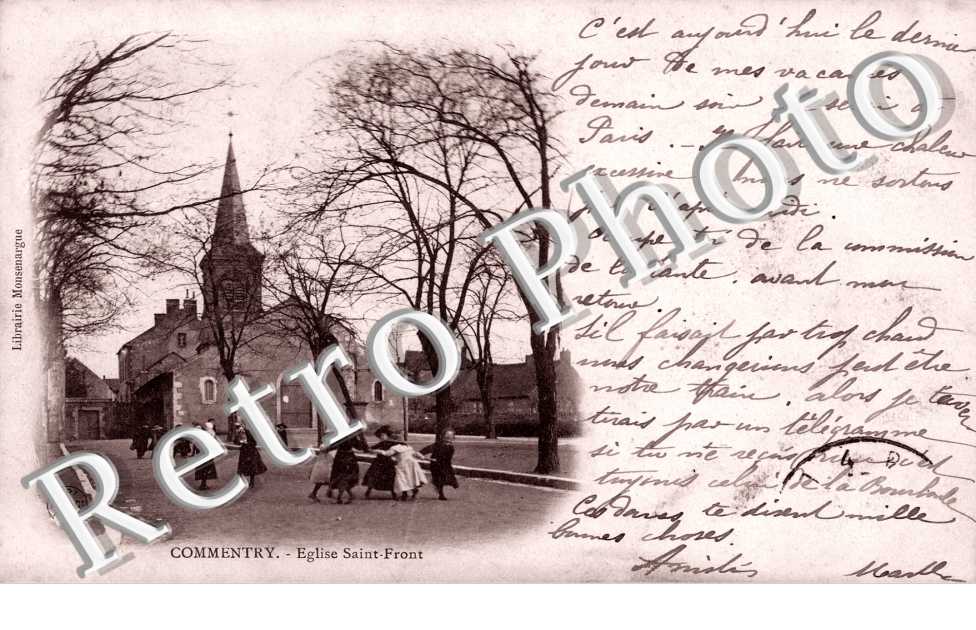 Librairie Monsenargue
COMMENTRY. - Eglise Saint-Front
Retro Photo
C'est aujourd'hui le dernier
jour de mes vacances
demain soir je serai à
Paris. Il fait une chaleur
excessive nous ne sortons
de la commission
de ta tante. avant mon
retour.
S'il faisait par trop chaud
nous changerions peut être
notre train, alors je t'aver
tirais par un télégramme
si tu ne reçois rien c'est
toujours celui de la Bourboule
Ces dames te disent mille
bonnes choses.
Amitiés